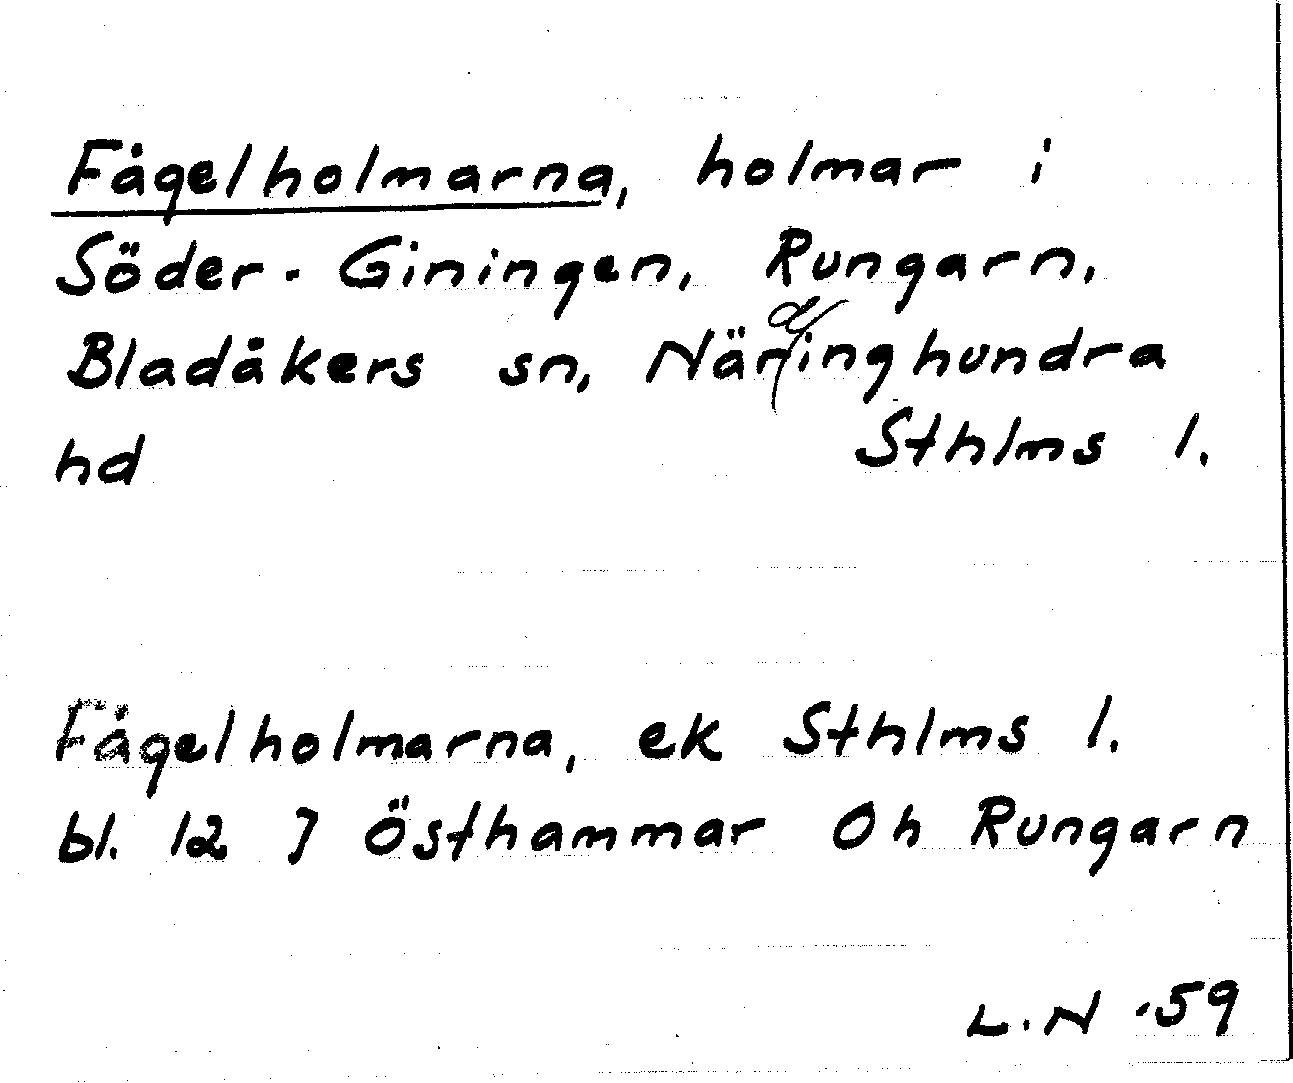 Fågelholmarna, holmar i
Söder-Giningen, Rungarn,
Bladåkers sn, Närdinghundra
hd Sthlms l.
Fågelholmarna, ek Sthlms l.
bl. 12 J Östhammar 0h Rungarn
L.N -59